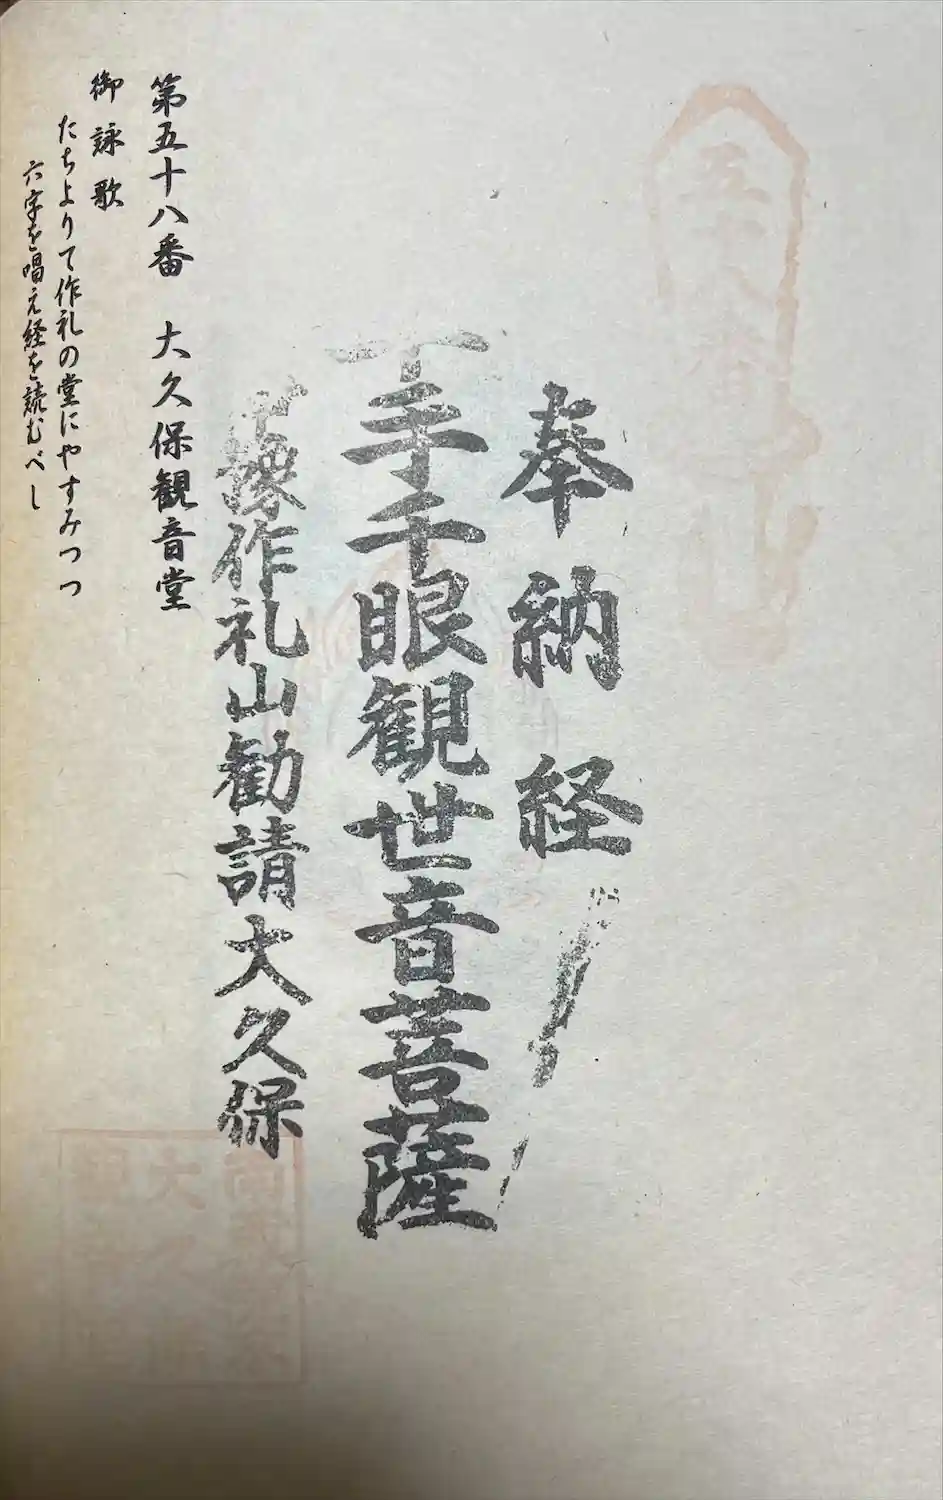 五十八番
奉納経
千手千眼観世音菩薩
作礼山勧請大久保
第五十八番 大久保観音堂
御詠歌
たちよりて作礼の堂にやすみつつ
六字を唱え経を読むべし
大久保